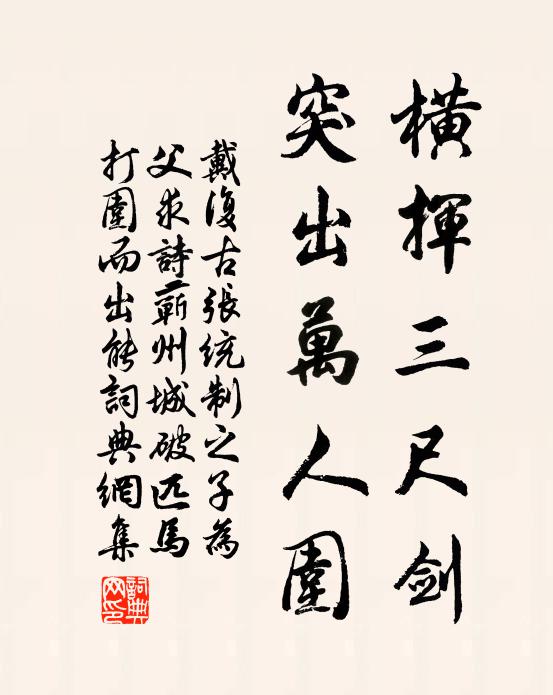 橫揮三尺劍
突出萬人圍
戴復古張統制之子為
父求詩蘄州城破匹馬
打圍而出能詞典網集
詞典网印